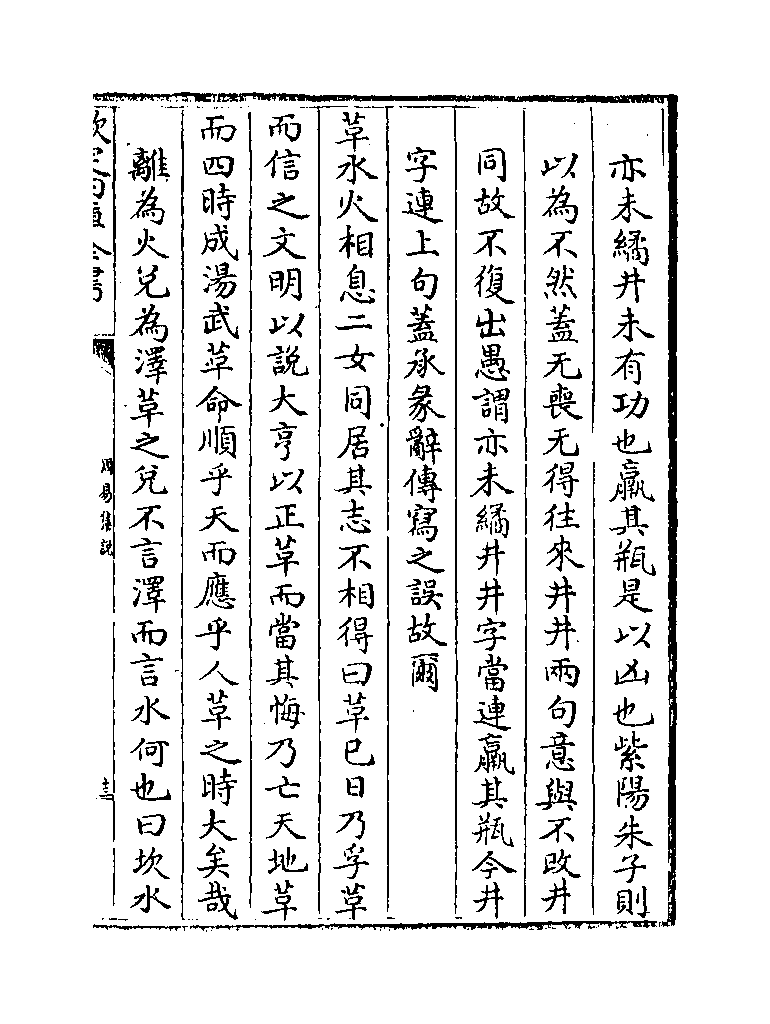 亦未繘井未有功也羸其瓶是以凶也紫陽朱子則
以為不然蓋无喪无得往來井井兩句意與不改井
同故不復出愚謂亦未繘井井字當連羸其瓶今井
字連上句蓋承彖辭傳寫之誤故爾
革水火相息二女同居其志不相得曰革已日乃孚革
而信之文明以說大亨以正革而當其悔乃亡天地革
而四時成湯武革命順乎天而應乎人革之時大矣哉
離為火兌為澤革之兌不言澤而言水何也曰坎水
欽定四庫全書
周易集說
十三